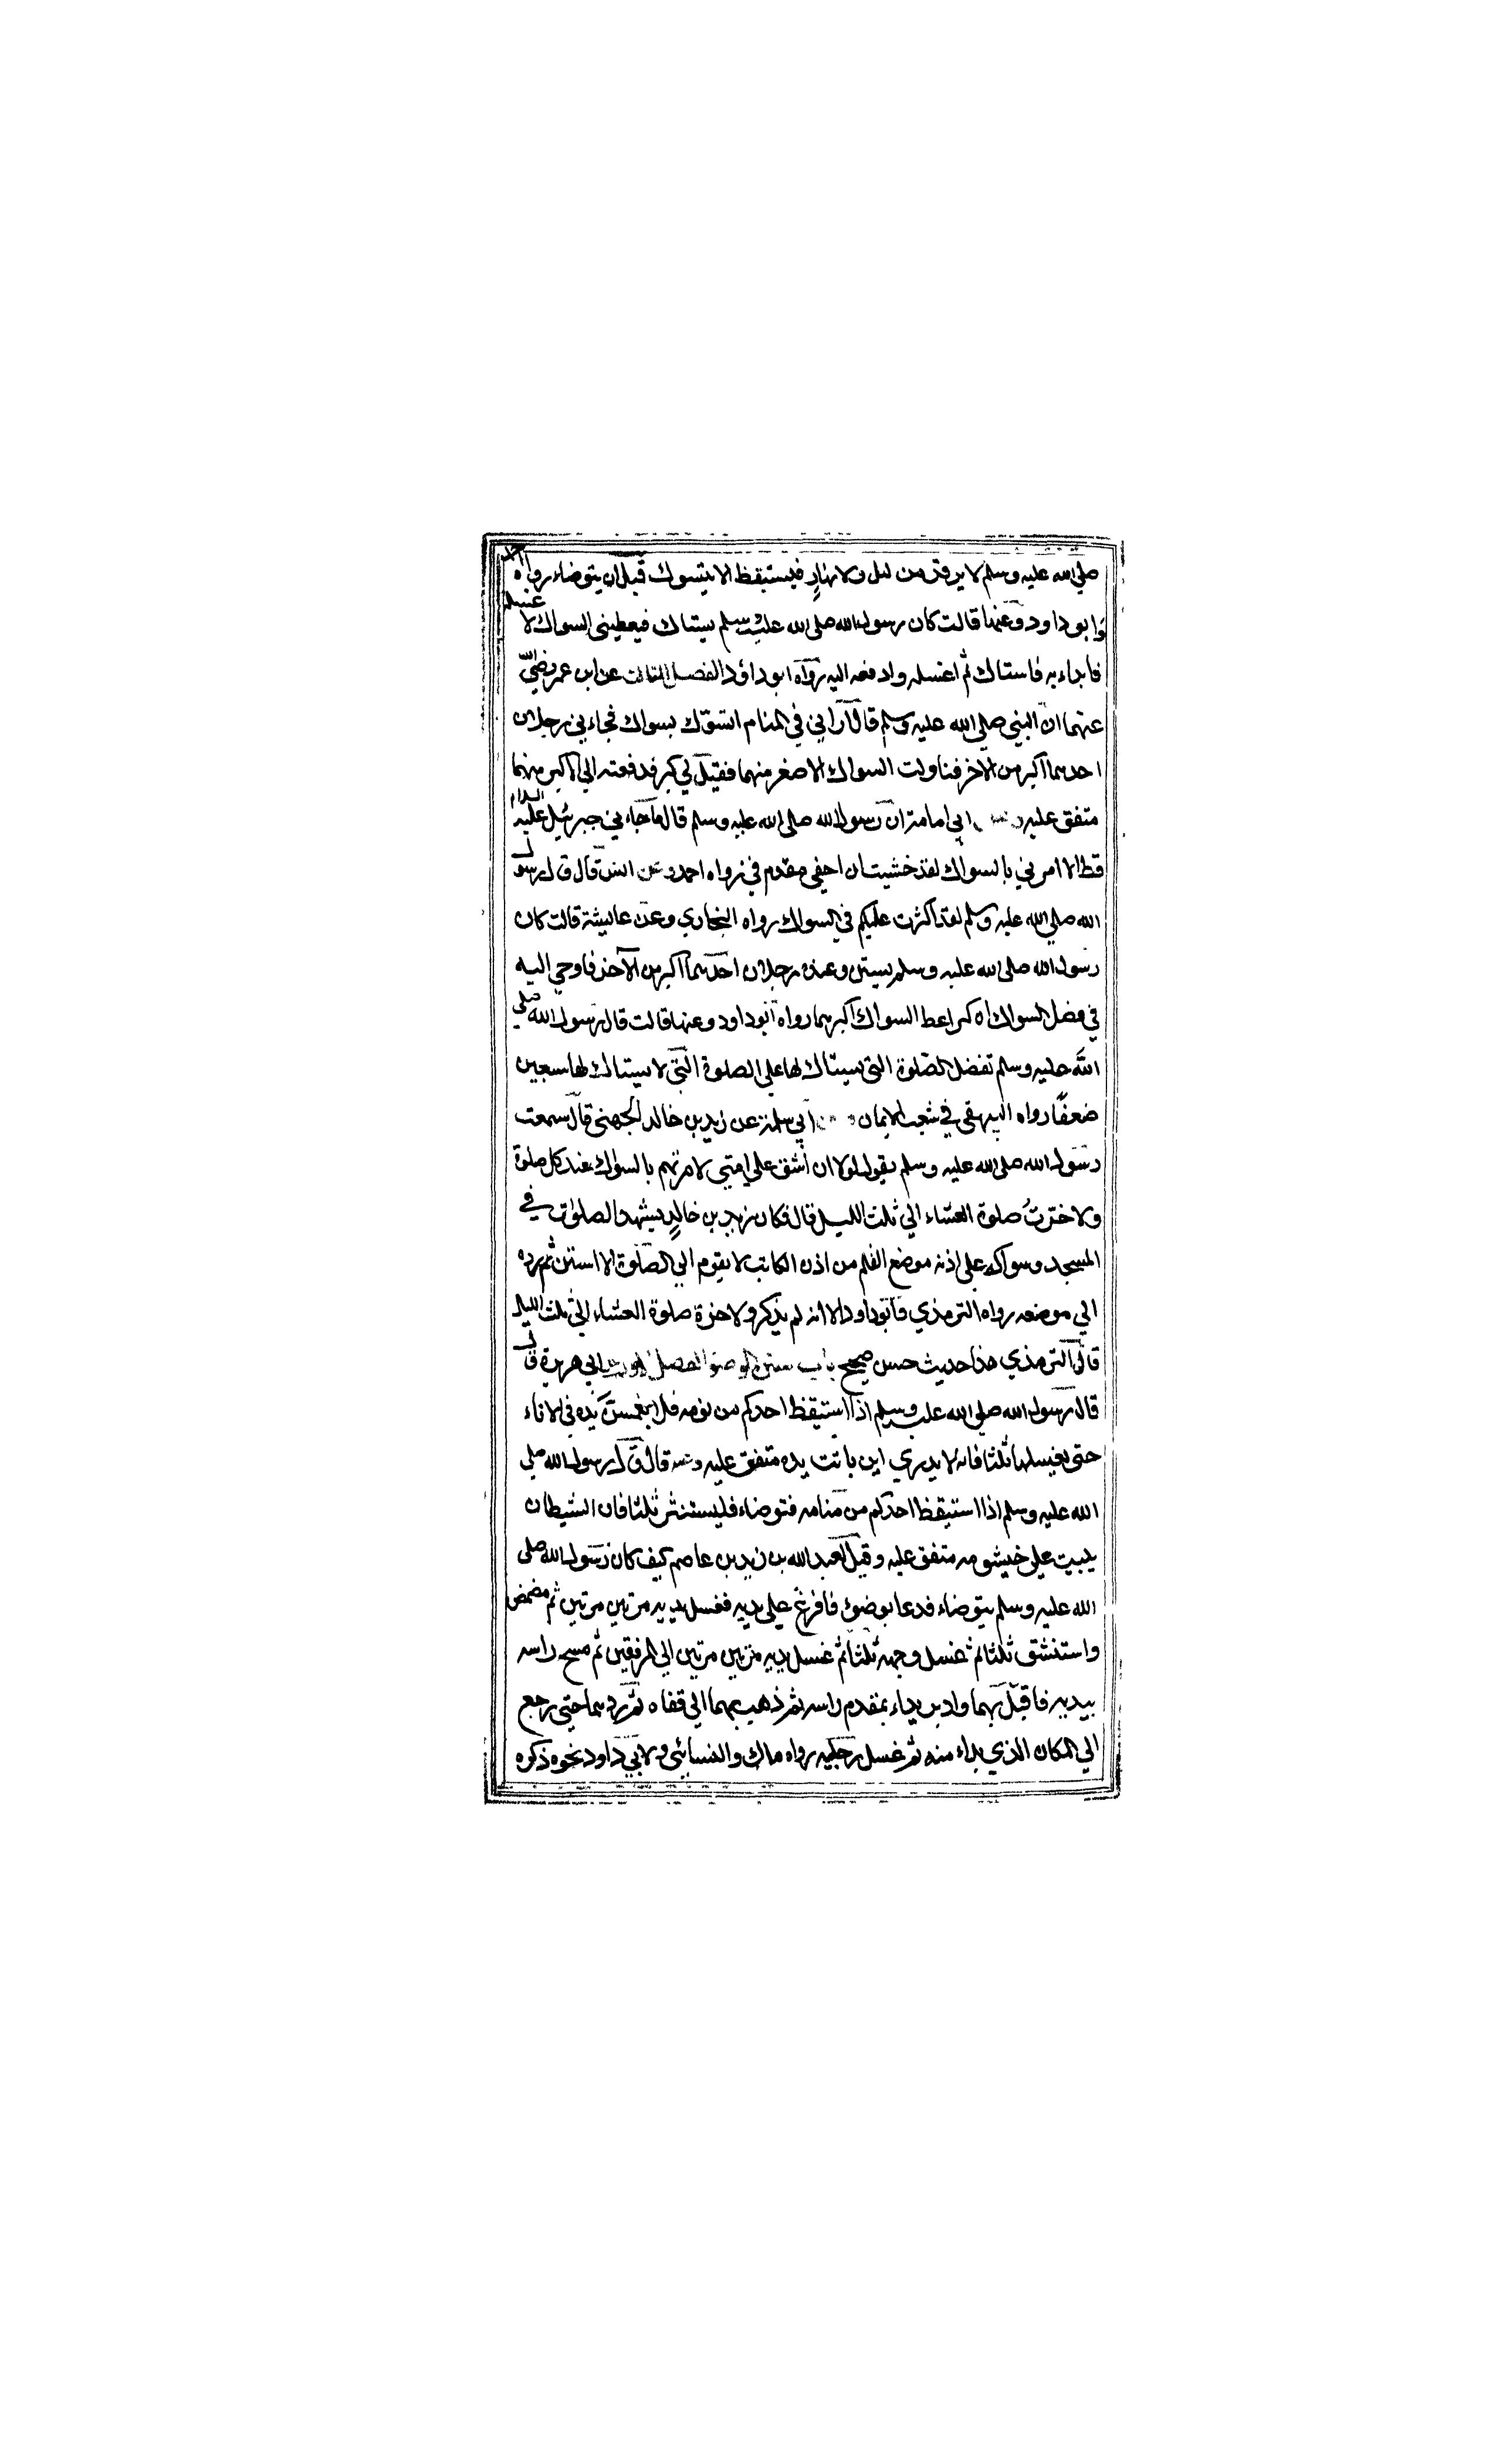 صلي الله عليه وسلم لا يرقد من ليل ولا نهارٍ فيستيقظ الا يتسوك قبل ان يتوضاء رواه احمد
وابو داود وعنها قالت كان رسول الله صلى الله عليه وسلم يستاك فيعطيني السواك لاغسله
فابداء به فاستاك ثم اغسله وادفعه اليه رواه ابو داؤد الفصل الثالث عن ابن عمر رضي الله
عنهما انّ النبي صلي الله عليه وسلم قال اراني في المنام اتسوّك بسواك فجاءني رجلان
احدهما اكبر من الآخر فناولت السواك الاصغر منهما فقيل لي كبر فدفعته الي الاكبر منهما
متفق عليه وعن ابي امامة ان رسول الله صلى الله عليه وسلم قال ما جاءني جبرئيل عليه السلام
قط الا امرني بالسواك لقد خشيت ان احفي مقدم فيّ رواه احمد وعن انس قال قال رسول
الله صلي الله عليه وسلم لقد اكثرت عليكم في السواك رواه البخاري وعن عايشة قالت كان
رسول الله صلى الله عليه وسلم يستن وعنده رجلان احدهما اكبر من الآخر فاوحي اليه
في فضل السواك ان كبر اعط السواك اكبرهما رواه ابو داود وعنها قالت قال رسول الله صلي
الله عليه وسلم تفضل الصلوة التي يستاك لها علي الصلوة التي لا يستاك لها سبعين
ضعفًا رواه البيهقي في شعب الايمان وعن ابي سلمة عن زيد بن خالد الجهني قال سمعت
رسول الله صلى الله عليه وسلم يقول لولا ان أشق علي امتي لامرتهم بالسواك عند كل صلوة
ولاخرتُ صلوة العشاء الي ثلث الليل قال فكان زيد بن خالدٍ يشهد الصلوات في
المسجد وسواكه علي اذنه موضع القلم من اذن الكاتب لا يقوم الي الصلوة الا استن ثم رده
الي موضعه رواه الترمذي وابو داود الا انه لم يذكر ولاخرة صلوة العشاء الي ثلث الليل
قال الترمذي هذا حديث حسن صحيح باب سنن الوضو الفصل الاول عن ابي هريرة قال
قال رسول الله صلي الله عليه وسلم اذا استيقظ احدكم من نومه فلا يغمسن يده في الاناء
حتى يغسلها ثلثا فانه لا يدري اين باتت يده متفق عليه وعنه قال قال رسول الله صلي
الله عليه وسلم اذا استيقظ احدكم من منامه فتوضاء فليستنثر ثلثا فان الشيطان
يبيت علي خيشومه متفق عليه وقيل لعبد الله بن زيد بن عاصم كيف كان رسول الله صلى
الله عليه وسلم يتوضاء فدعا بوضوء فافرغ على يديه فغسل يديه مرتين مرتين ثم مضمض
واستنشق ثلثا ثم غسل وجهه ثلثا ثم غسل يديه مرتين مرتين الي المرفقين ثم مسح راسه
بيديه فاقبل بهما وادبر بداء بمقدم راسه ثم ذهب بهما الي قفاه ثم ردهما حتى رجع
الي المكان الذي بداء منه ثم غسل رجليه رواه مالك والنسائي ولابي داود نحوه ذكره